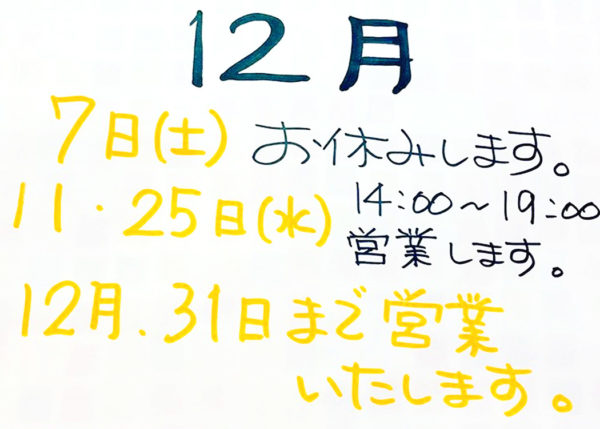 12月
7日(土) お休みします。
11・25日(水) 14:00〜19:00
営業します。
12月.31日まで営業
いたします。